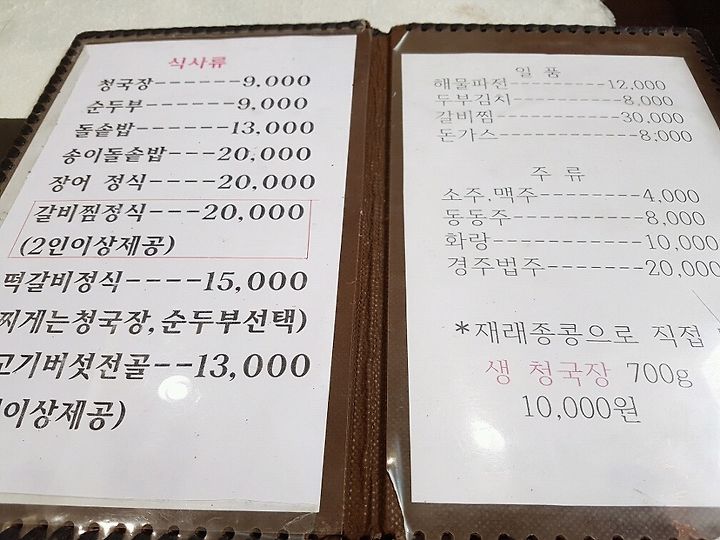 식사류
청국장------9,000
순두부------9,000
돌솥밥------13,000
송이돌솥밥---20,000
장어 정식----20,000
갈비찜정식---20,000
(2인이상제공)
떡갈비정식----15,000
찌게는청국장,순두부선택)
고기버섯전골--13,000
이상제공)
일 품
해물파전----------12,000
두부김치-----------8,000
갈비찜------------30,000
돈가스-------------8,000
주 류
소주,맥주---------4,000
동동주------------8,000
화랑-------------10,000
경주법주-------20,000
*재래종콩으로 직접
생 청국장 700g
10,000원